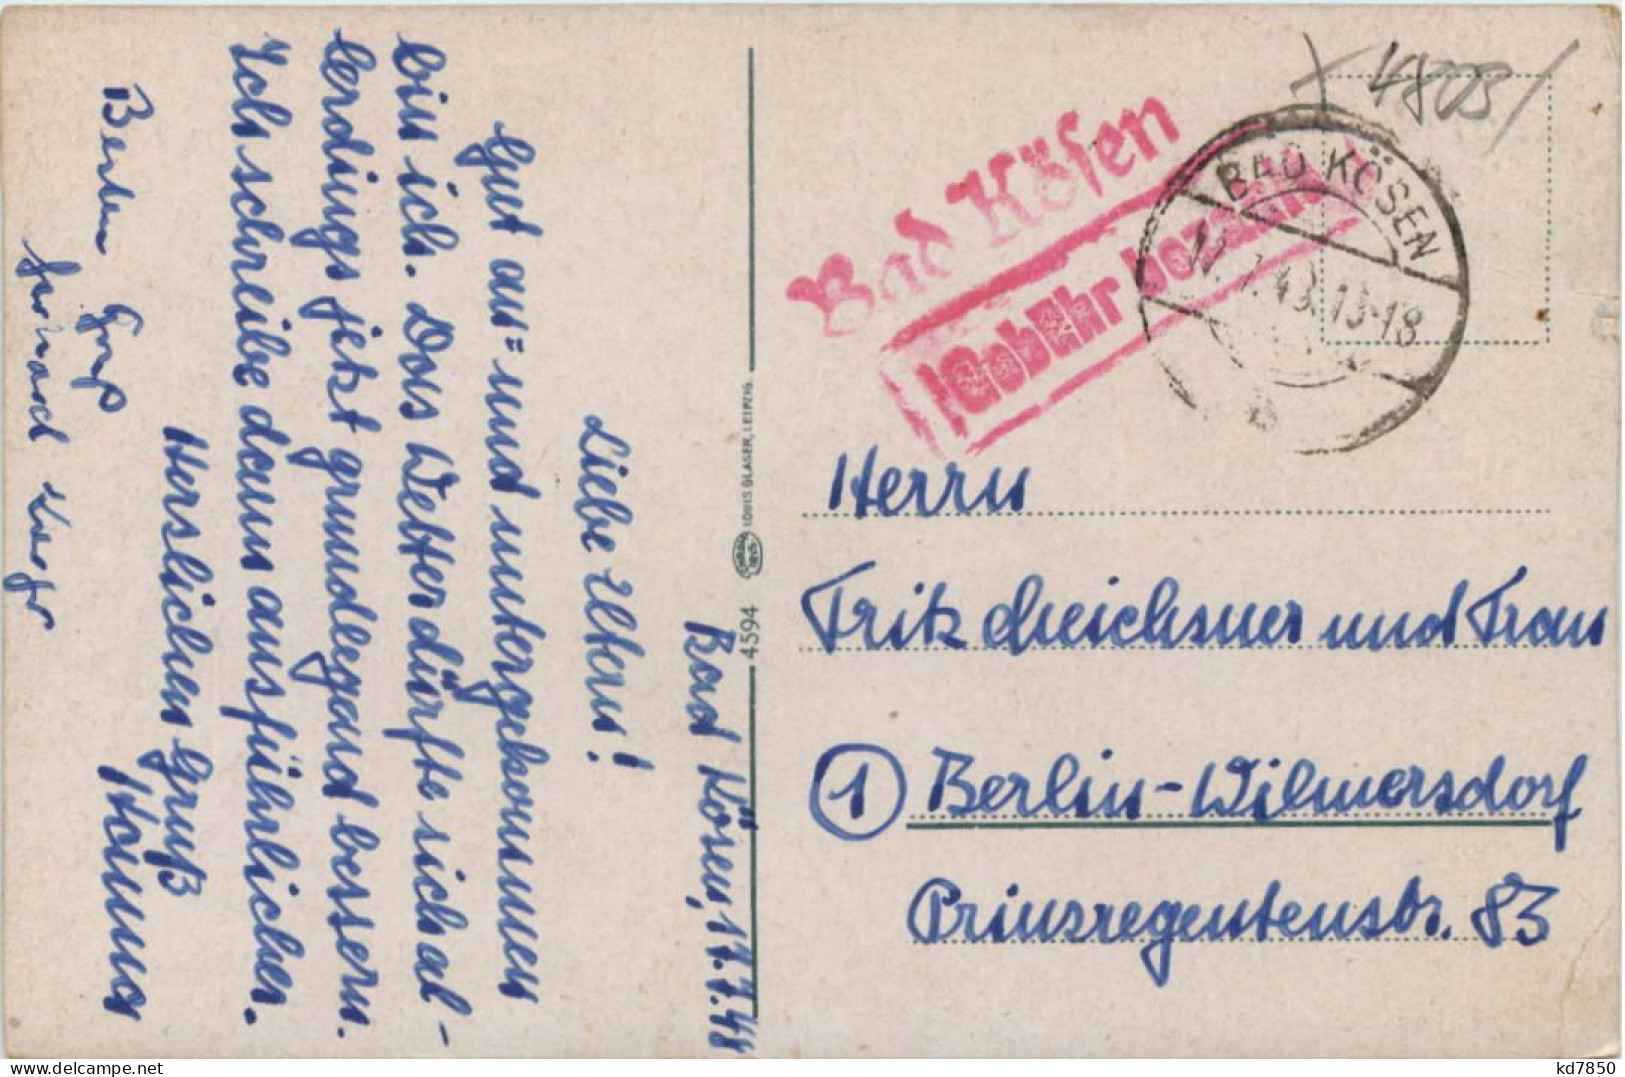 Bad Kösen, 17.7.48
Liebe Eltern!
Gut an= und untergekommen
bin ich. Das Wetter dürfte sich al-
lerdings jetzt grundlegend bessern.
Ich schreibe dann ausführlicher.
Herzlichen Gruß
Hannes
Besten Gruß
Gerhard
4594
LOUIS GLASER, LEIPZIG
4803
Bad Kösen
Gebühr bezahlt
BAD KÖSEN
Herrn
Fritz Meichsner und Frau
1 Berlin-Wilmersdorf
Prinzregentenstr. 83
kd7850